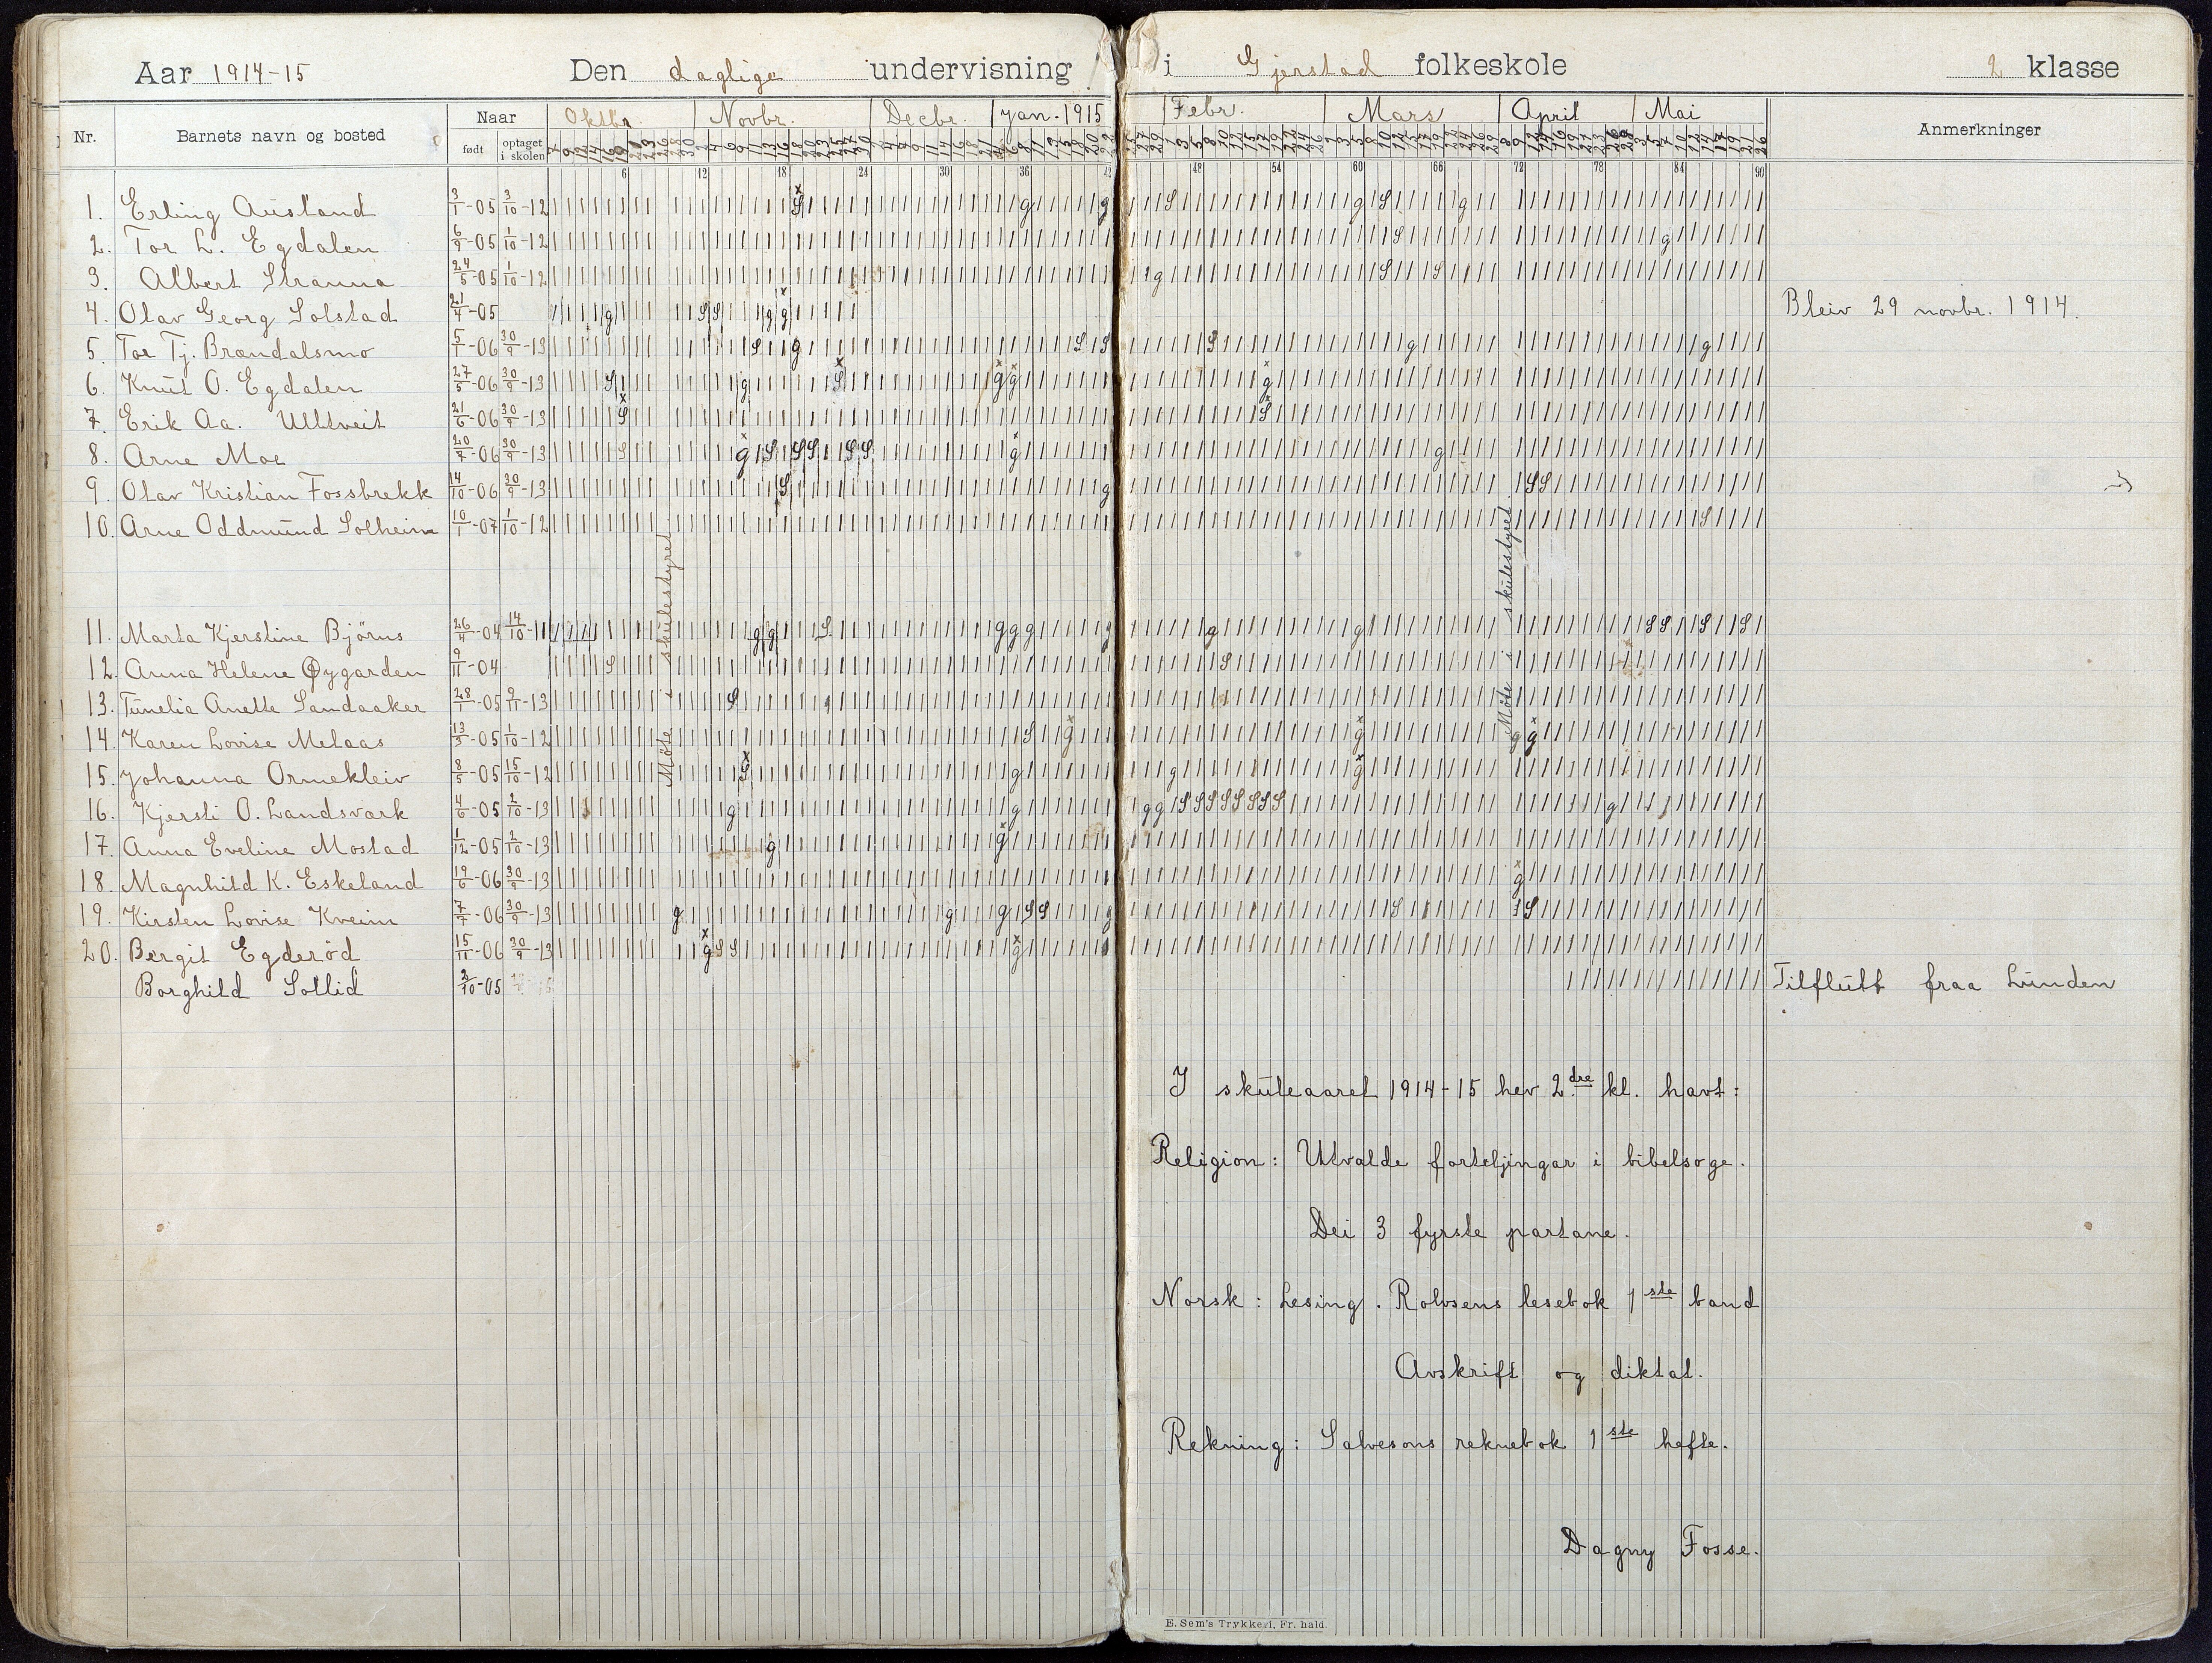 Aar 1914-15 Den daglige undervisning i Gjerstad folkeskole 2 klasse
Nr. Barnets navn og bosted Naar født optaget i skolen Oktbr. Novbr. Decbr. Jan. 1915 Febr. Mars April Mai Anmerkninger
6 12 18 24 30 36 42 48 54 60 66 72 78 84 90
1. Erling Ausland 3/1-05 3/10-12
2. Tor L. Egdalen 6/9-05 1/10-12
3. Albert Stranna 24/5-05 1/10-12
4. Olav Georg Solstad 21/4-05 Bleiv 29 novbr. 1914.
5. Tor Tj. Brændalsmo 5/1-06 30/9-13
6. Knut O. Egdalen 27/5-06 30/9-13
7. Erik Aa. Ulltveit 21/6-06 30/9-13
8. Arne Moe 20/7-06 30/9-13
9. Olav Kristian Fossbrekk 14/10-06 30/9-13
10. Arne Oddmund Solheim 10/1-07 1/10-12
Møte i skulestyret
Møte i skulestyret
11. Marta Kjerstine Bjørns 26/4-04 14/10-11
12. Anna Helene Øygarden 9/11-04
13. Tunelia Anette Sandaaker 28/1-05 9/11-13
14. Karen Lovise Melaas 13/3-05 1/10-12
15. Johanna Ormekleiv 8/5-05 15/10-12
16. Kjersti O. Landsvark 4/6-05 2/10-13
17. Anna Eveline Mostad 1/12-05 2/10-13
18. Magnhild K. Eskeland 19/6-06 30/9-13
19. Kirsten Lovise Kveim 7/7-06 30/9-13
20. Bergit Egderød 15/11-06 30/9-13
Borghild Sollid 2/10-05 Tilflutt fraa Lunden
I skuleaaret 1914-15 hev 2.dre kl. havt:
Religion: Utvalde forteljingar i bibelsoge.
Dei 3 fyrste partane.
Norsk: Lesing. Rolvsens lesebok 1ste band
Avskrift og diktat.
Rekning: Salvesons reknebok 1ste hefte.
Dagny Fosse.
E. Sem's Trykkeri, Fr. hald.